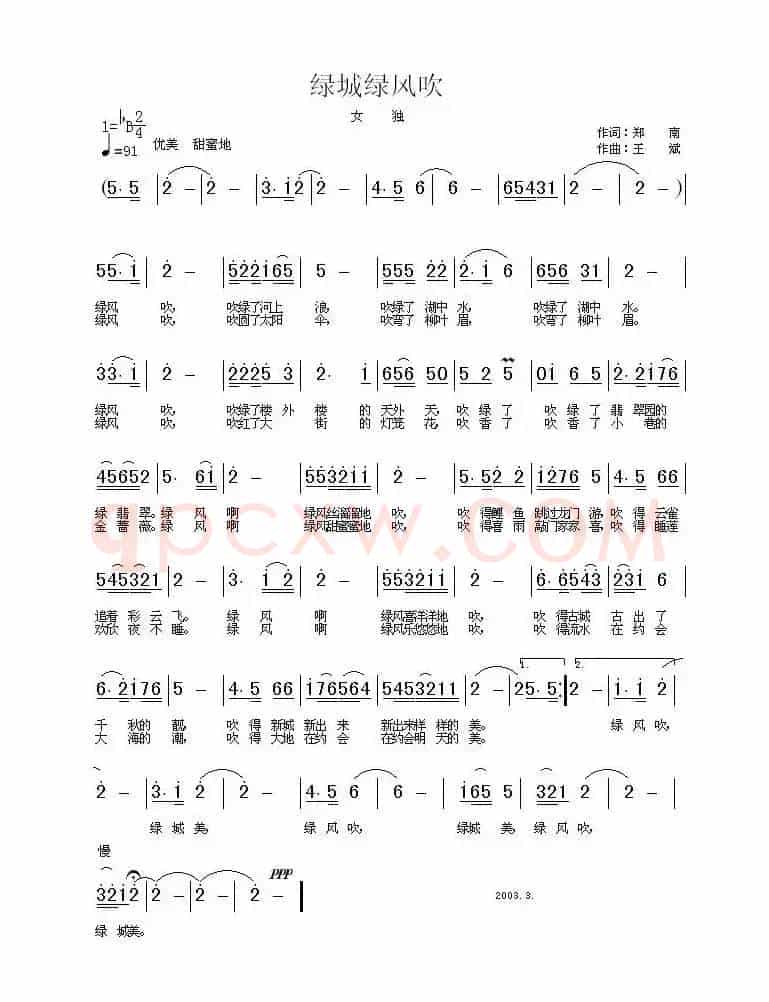 绿城绿风吹
女 独
1=♭B 2/4
♩=91 优美 甜蜜地
作词:郑 南
作曲:王 斌
(5·5 | 2 - | 2 - | 3·12 | 2 - | 4·5 6 | 6 - | 65431 | 2 - | 2 - )
55·1 | 2 - | 522165 | 5 - | 555 22 | 2·1 6 | 656 31 | 2 -
绿风 吹, 吹绿了河上 浪, 吹绿了 湖中 水, 吹绿了 湖中 水。
绿风 吹, 吹圆了太阳 伞, 吹弯了 柳叶 眉, 吹弯了 柳叶 眉。
33·1 | 2 - | 2225 3 | 2· 1 | 656 50 | 5 2 5 | 01 6 5 | 2·2176
绿风 吹, 吹绿了楼 外 楼 的 天外 天, 吹 绿 了 吹 绿 了 翡 翠园的
绿风 吹, 吹红了大 街 的 灯笼 花, 吹 香 了 吹 香 了 小 巷的
45652 | 5· 61 | 2 - | 553211 | 5 - | 5·52 2 | 1276 5 | 4·5 66
绿 翡 翠。绿 风 啊 绿风丝溜溜地 吹, 吹 得鲤 鱼 跳过龙门 游, 吹 得 云雀
金 蔷 薇。绿 风 啊 绿风甜蜜蜜地 吹, 吹 得喜 雨 敲门家家 喜, 吹 得 睡莲
545321 | 2 - | 3· 1 2 | 2 - | 553211 | 2 - | 6·6543 | 231 6
追着 彩 云 飞。 绿 风 啊 绿风喜洋洋地 吹, 吹 得古城 古 出 了
欢欣 夜 不 睡。 绿 风 啊 绿风乐悠悠地 吹, 吹 得流水 在 约 会
6·2176 | 5 - | 4·5 66 | 176564 | 5453211 | 2 - | 1. 25·5 :| 2. 2 - | 1·1 2
千 秋的 靓, 吹 得 新城 新出 来 新出来样 样的 美。 绿 风 吹,
大 海的 潮, 吹 得 大地 在约 会 在约会明 天的 美。
2 - | 3·1 2 | 2 - | 4·5 6 | 6 - | 165 5 | 321 2 | 2 -
绿 城 美, 绿 风 吹, 绿城 美, 绿 风 吹,
慢
ppp
3212 | 2 - | 2 - | 2 - ‖
2003.3.
绿 城美。
qpcxw.com